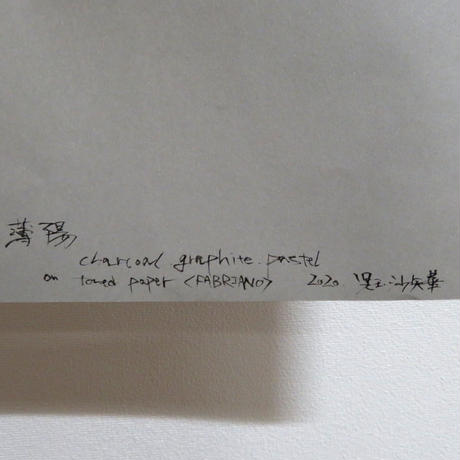 薄陽
charcoal, graphite, pastel
on toned paper <FABRIANO> 2020. 沙矢華